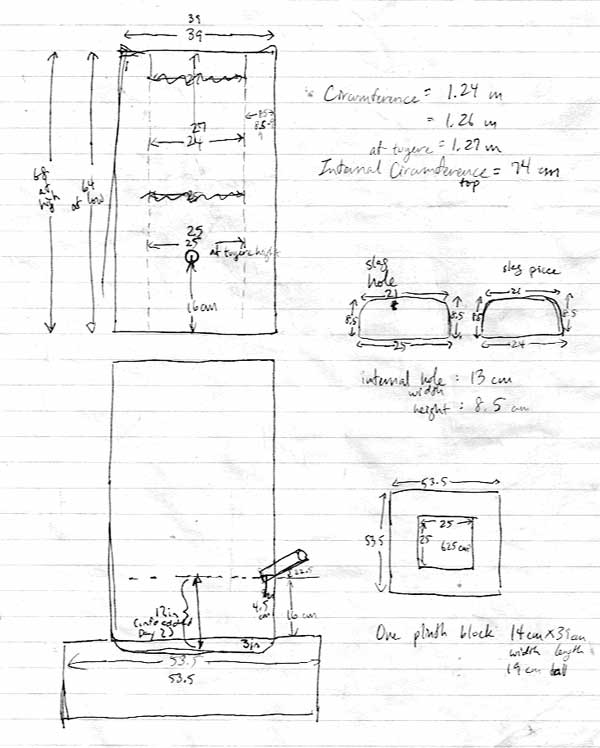 39
39
68
at
high
64
at low
27
24
25
25
at tuyere height
16cm
Circumference = 1.24 m
= 1.26 m
at tuyere = 1.27 m
Internal Circumference = 74 cm
top
slag
hole
21
8.5
8.5
25
slag piece
21
8.5
8.5
24
internal hole : 13 cm
width
height : 8.5 cm
53.5
53.5
25
25
625cm
22.5
4.5
cm
16 cm
12in
Day 2
3in
53.5
53.5
One plinth block 14cm x 39cm
width length
19cm tall